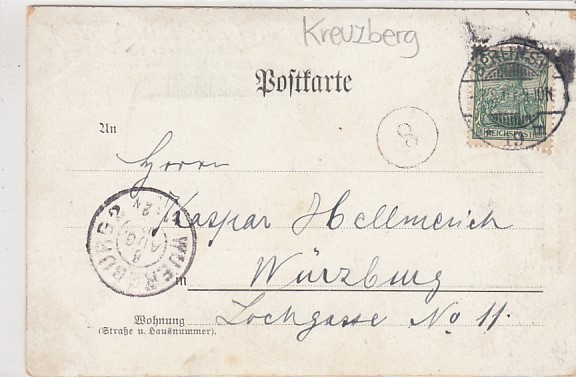 Kreuzberg
BERLIN S.W.
REICHSPOST
19
Postkarte
8
An
Herrn
Kaspar Hellmerich
WUERZBURG 2
AUG
8
in Würzburg
Wohnung
(Straße u. Hausnummer).
Lochgasse No 11.